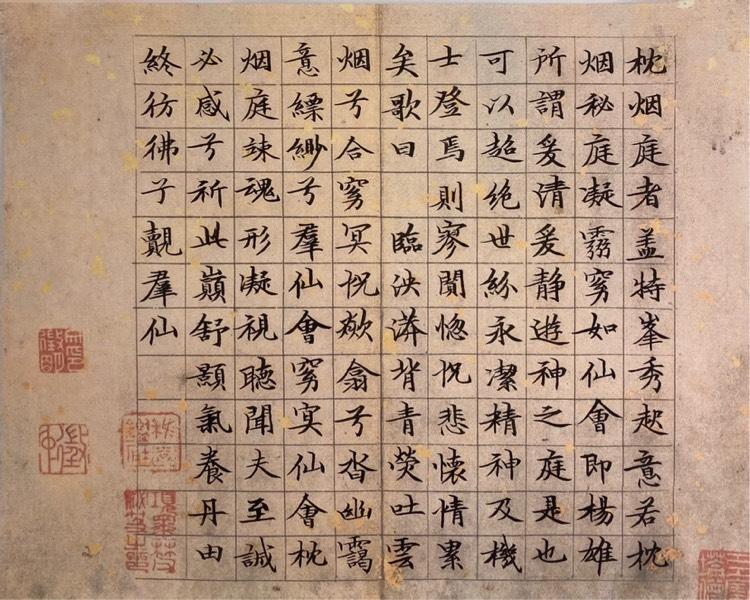 枕烟庭者盖特峯秀起意若枕
烟秘庭凝窮如仙會即楊雄
所謂爰清爰静遊神之庭是也
可以超绝世紛永潔精神及機
士登焉則寥闃惚怳悲懷情累
矣歌曰臨泱漭背青熒吐雲
烟兮合窮冥怳欻翕兮沓幽靄
意縹緲兮羣仙會窮冥仙會枕
烟庭竦魂形凝視聽聞夫至誠
必感兮祈此巔舒顥氣養丹由
終彷彿子覿羣仙